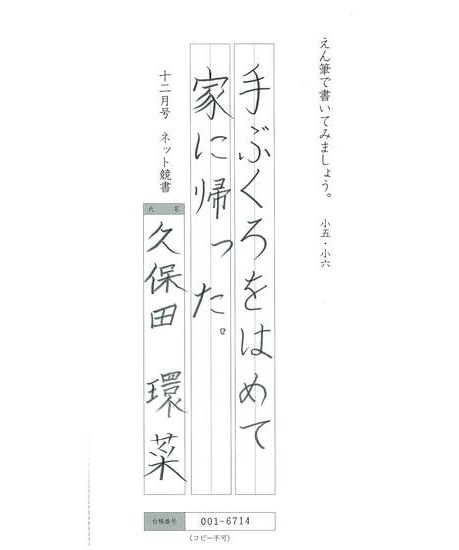 えん筆で書いてみましょう。 小五・小六
手ぶくろをはめて
家に帰った。
十二月号 ネット競書
氏名
久保田 環菜
会員番号 001-6714
(コピー不可)